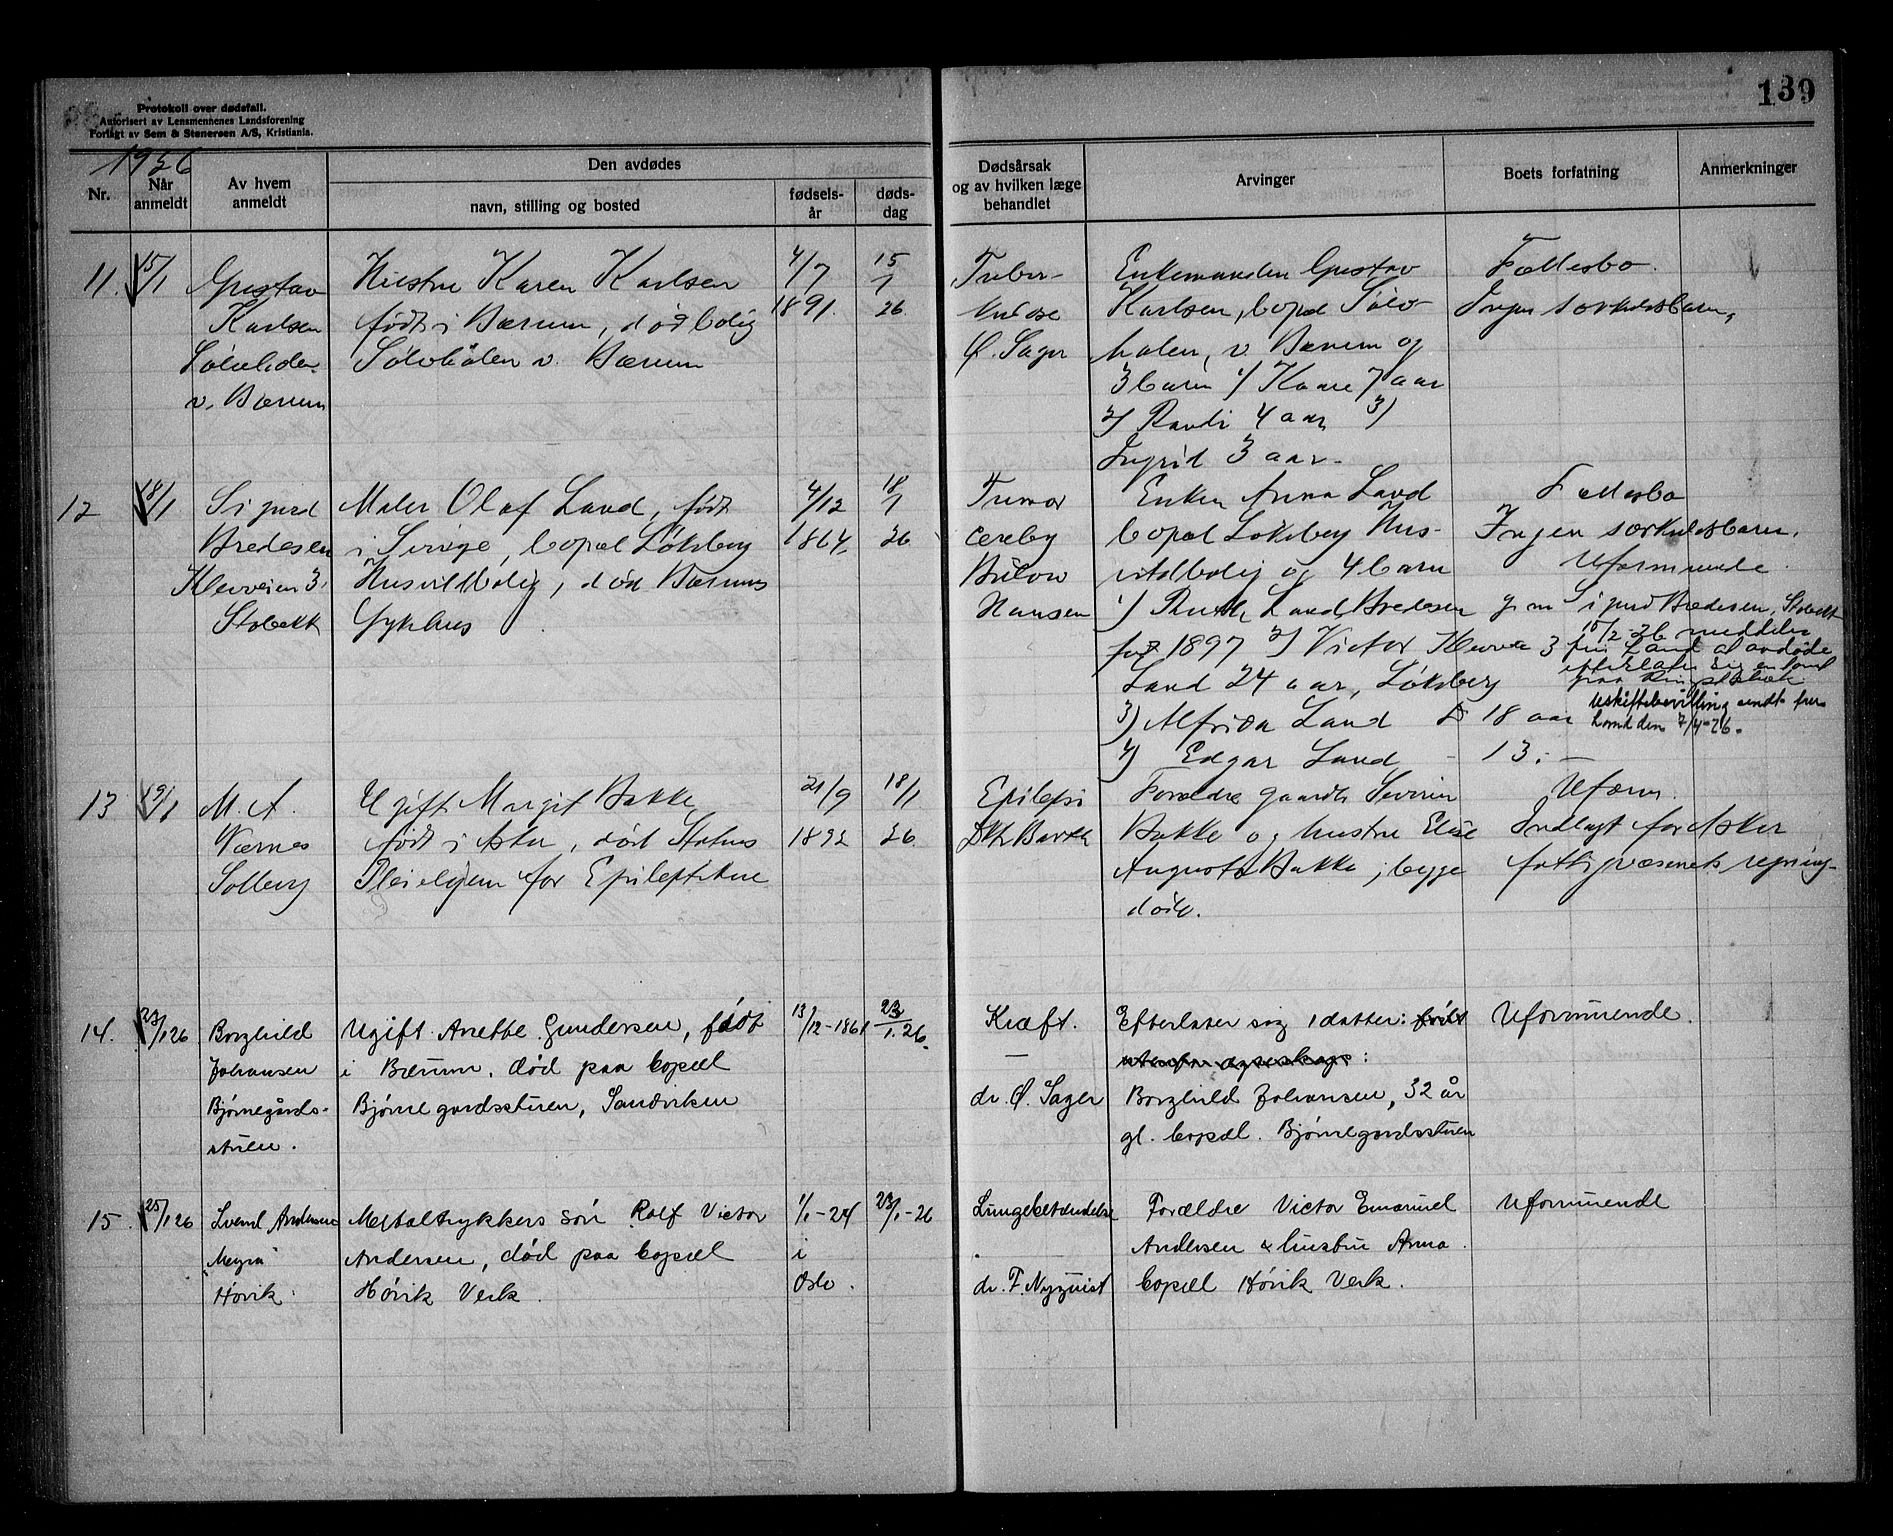 Protokoll over dødsfall.
Autorisert av Lensmennenes Landsforening
Forlagt av Sem & Stenersen A/S, Kristiania.
139
1926
Nr.
Når anmeldt
Av hvem anmeldt
Den avdødes
navn, stilling og bosted
fødsels-år
døds-dag
Dødsårsak og av hvilken læge behandlet
Arvinger
Boets forfatning
Anmerkninger
11. 15/1
Gustav
Karlsen
v. Bærum
Hustru Karen Karlsen
født i Bærum, død bolig
v. Bærum
4/7
1891.
15/1
26
Tuber-
kulose
Ø. Sager
Enkemanden Gustav
Karlsen, bopæl Sølv-
v. Bærum og
3 barn 1) Kaare 7 aar
2) Randi 4 aar 3)
Ingrid 3 aar.
Fællesbo.
Ingen særkuldsbarn.
12 18/1
Sigurd
Bredesen
Klevveien 3,
Stabekk
Maler Olaf Land, født
i Sverige, bopæl Løksberg
Husvildbolig, død Bærums
Sykehus
4/12
1864,
18/1
26
Tumor
cereby
Bülow
Hansen
Enken Anna Land
bopæl Løksberg Hus-
vildbolig og 4 barn
1) Ruth Land Bredesen g. m. Sigurd Bredesen, Stabekk
født 1897 2) Victor Klevvei 3
Land 24 aar, Løksberg
3) Alfrida Land 18 aar
4) Edgar Land - 13 . -
Fællesbo
Ingen særkuldsbarn.
Uformuende
15/2-26 meddeler
fru Land at avdøde
efterlater sig en tomt
paa Ringstabæk
Uskiftebevilling sendt fru
Land den 7/4-26.
13 19/1
M. A.
Værnes
Solberg
Ugift Margit Bakke
født i Asker, død Statens
Pleiehjem for Epileptikere
21/9
1892
18/1
26
Epilepsi
Dr. Barth
Forældre gaardb. Severin
Bakke og hustru Elise
Augusta Bakke, begge
døde.
Uform.
Indlagt for Asker
fattigvæsenets regning-
14. 23/1 26
Borghild
Johansen
Bjørnegårds-
stuen.
Ugift Anette Gundersen, født
i Bærum, død paa bopæl
Bjørnegardsstuen, Sandviken
13/12-1861
23/1.26.
Kræft.
—
dr. Ø. Sager
Efterlater sig 1 datter: født
utenfor egteskap:
Borghild Johansen, 32 år
gl. bopæl. Bjørnegardsstuen
Uformuende.
15. 25/1 26
Svend Andersen
"Myra"
Høvik.
Metaltrykkers søn Rolf Victor
Andersen, død paa bopæl
Høvik Verk.
1/1-24
i
Oslo.
23/1-26
Lungebetændelse
dr. F. Nyquist
Forældre Victor Emanuel
Andersen & hustru Anna
bopæl Høvik Verk.
Uformuende